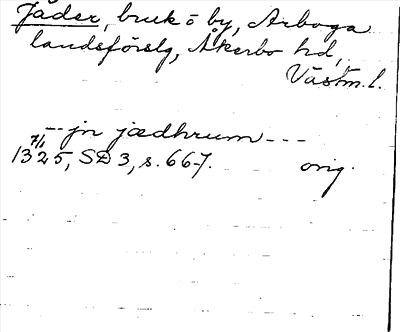 Jäder, bruk o by, Arboga
landsförslg, Åkerbo hd,
Västm.l.
-- jn jædhrum ---
7/1
1325, SD 3, s. 667. orig.